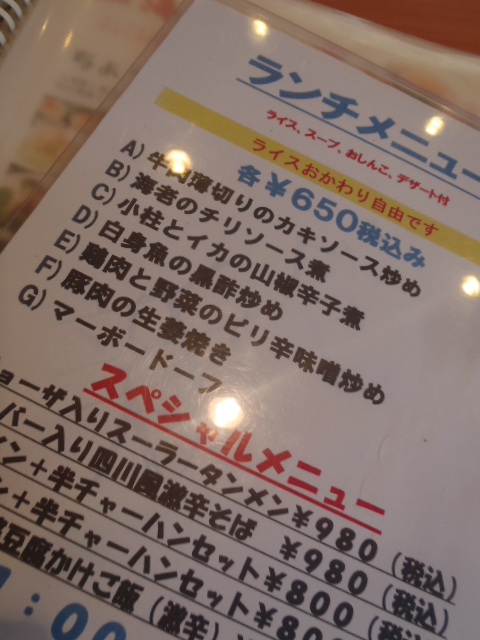 ランチメニュー
ライス、スープ、おしんこ、デザート付
ライスおかわり自由です
各￥650税込み
A) 牛肉薄切りのカキソース炒め
B) 海老のチリソース煮
C) 小柱とイカの山椒辛子煮
D) 白身魚の黒酢炒め
E) 鶏肉と野菜のピリ辛味噌炒め
F) 豚肉の生姜焼き
G) マーボードーフ
スペシャルメニュー
ョーザ入りスーラータンメン￥980（税込）
バー入り四川風激辛そば ￥980（税込）
メン＋半チャーハンセット￥800（税込）
ン＋半チャーハンセット￥80
豆腐かけご飯（激辛）
：00